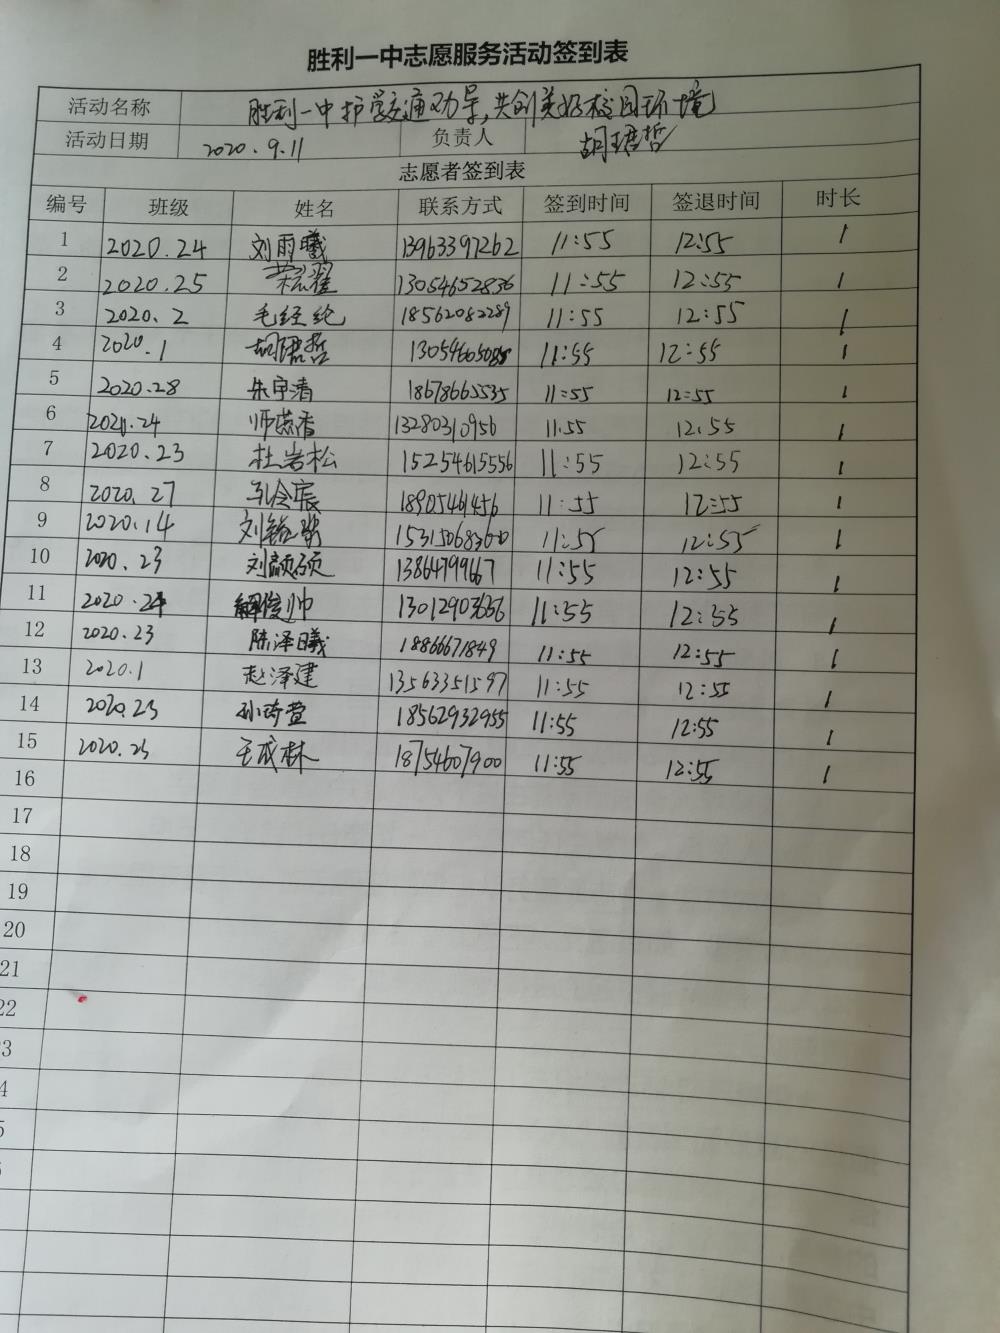 胜利一中志愿服务活动签到表
活动名称 胜利一中护学交通劝导,共创美好校园环境
活动日期 2020.9.11 负责人 胡珺哲
志愿者签到表
编号 班级 姓名 联系方式 签到时间 签退时间 时长
1 2020.24 刘雨曦 13963397262 11:55 12:55 1
2 2020.25 13054652836 11:55 12:55 1
3 2020.2 毛经纶 18562082289 11:55 12:55 1
4 2020.1 胡珺哲 11:55 12:55 1
5 2020.28 朱宇清 18678665535 11:55 12:55 1
6 2020.24 师蕊香 13280310956 11:55 12:55 1
7 2020.23 杜岩松 15254615556 11:55 12:55 1
8 2020.27 孔令宸 18905461456 11:55 12:55 1
9 2020.14 11:55 12:55 1
10 2020.23 刘颜硕 13864799667 11:55 12:55 1
11 解俊帅 13012903656 11:55 12:55 1
12 2020.23 陈泽曦 18866671849 11:55 12:55 1
13 2020.1 赵泽建 13563351597 11:55 12:55 1
14 2020.23 孙琦萱 18562932955 11:55 12:55 1
15 2020.23 王成林 18754607900 11:55 12:55 1
16
17
18
19
20
21
22
3
4
5